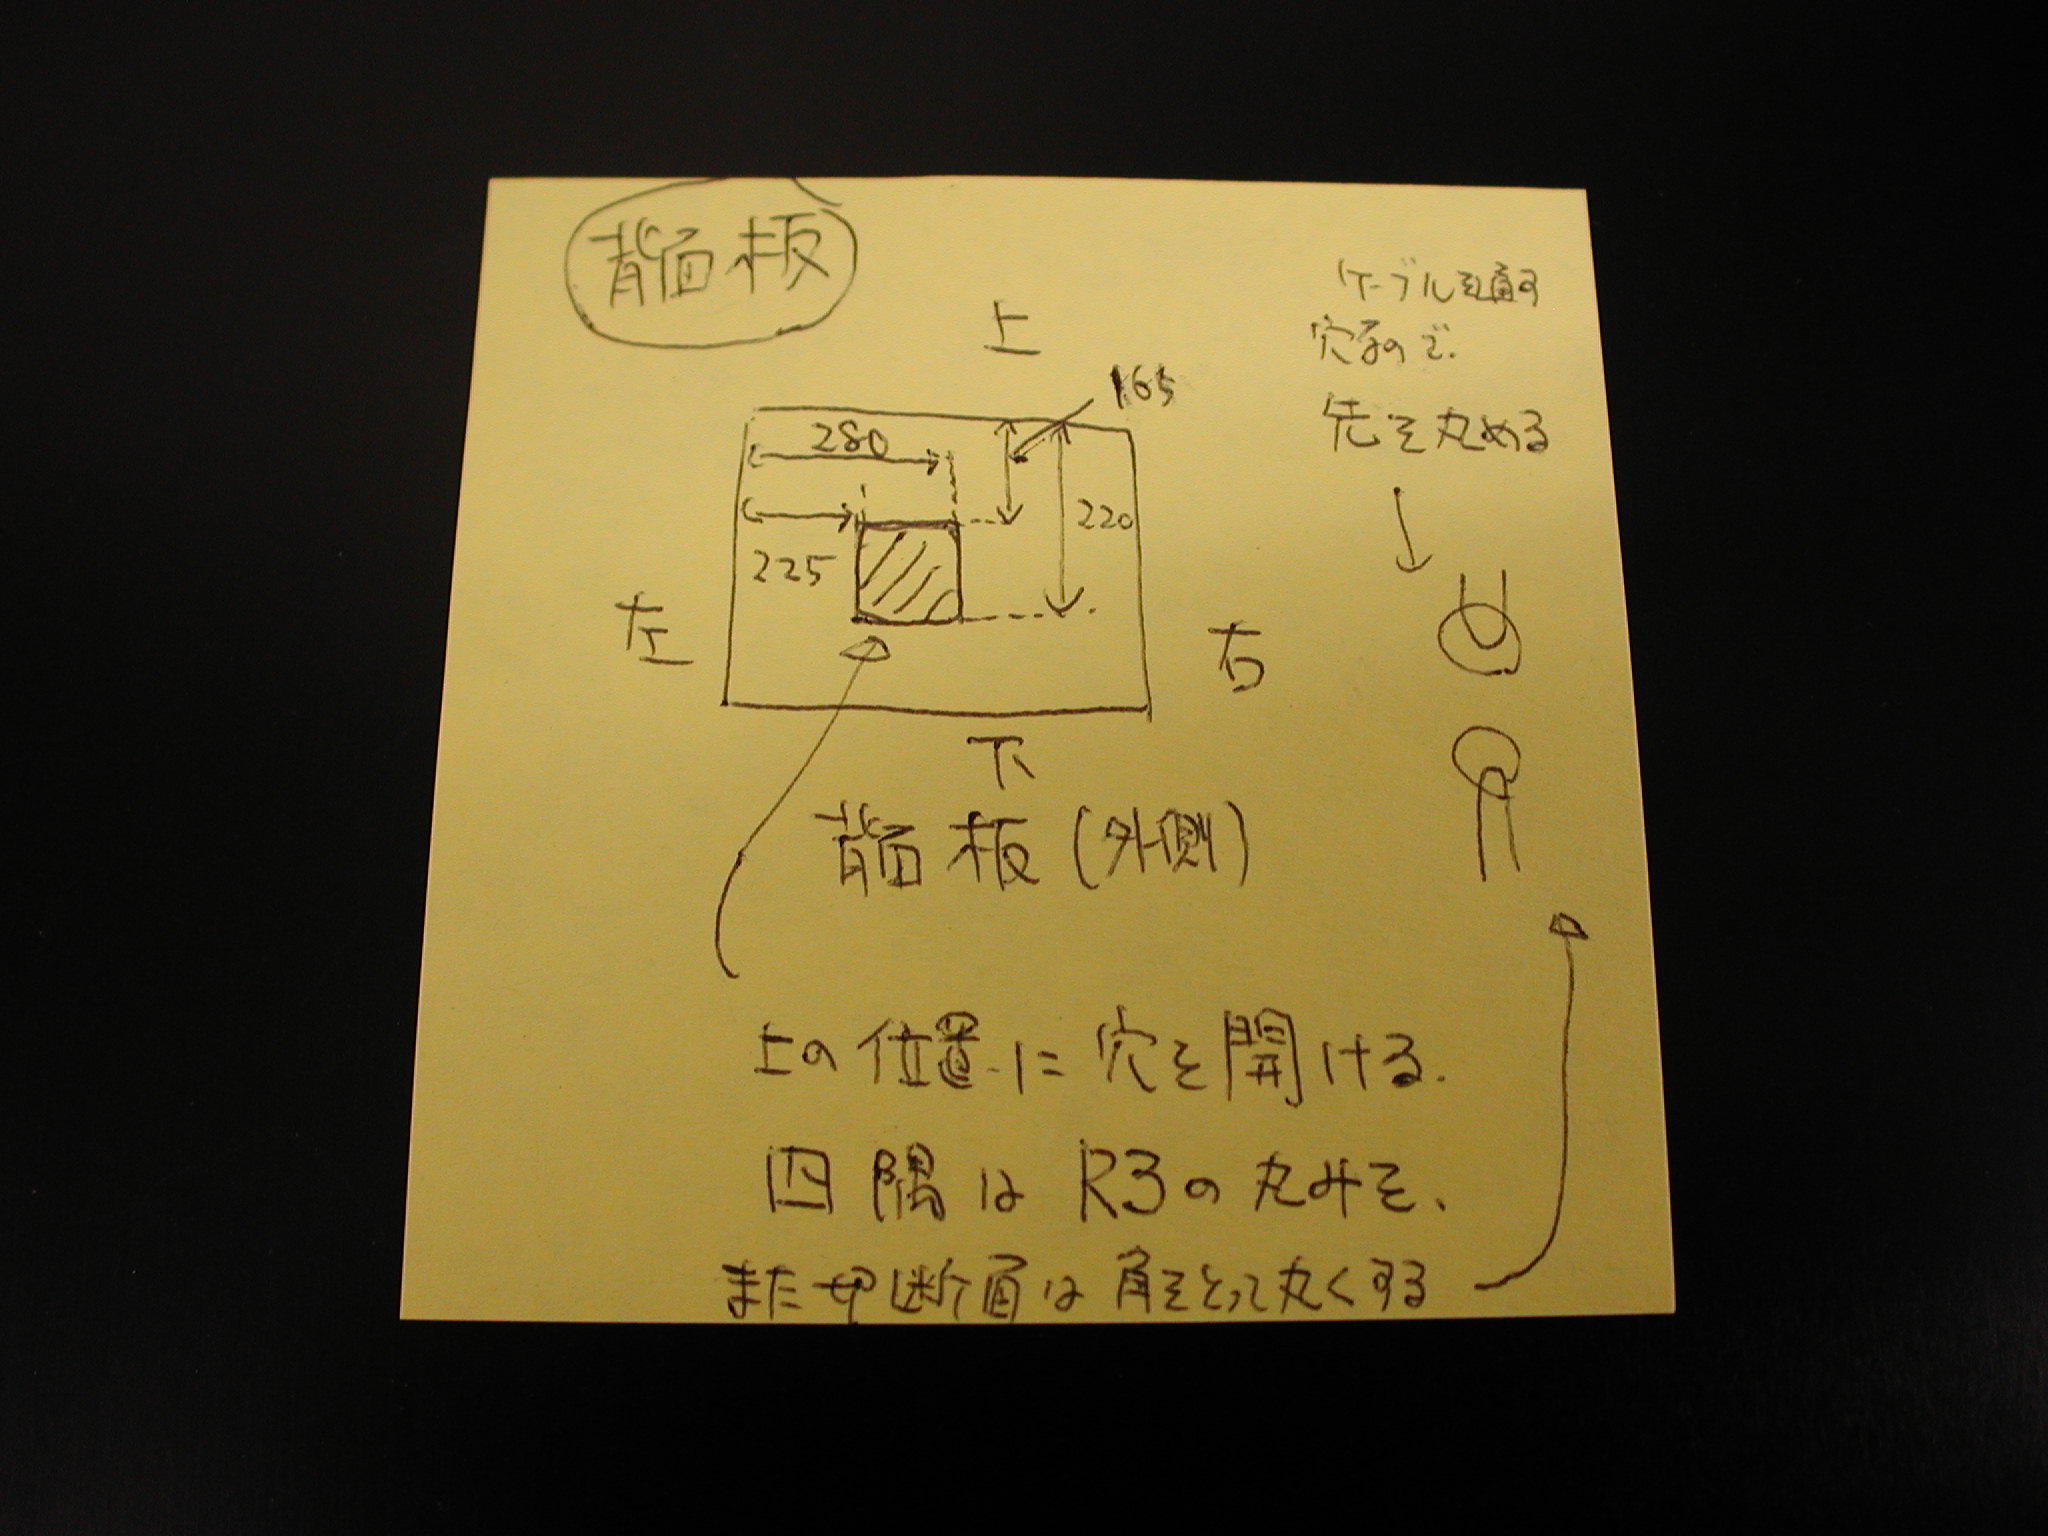 背面板
ケーブルを通す
穴なので、
先を丸める
上
165
280
220
225
左
右
下
背面板(外側)
上の位置に穴を開ける.
四隅はR3の丸みを、
また切断面は角をとって丸くする